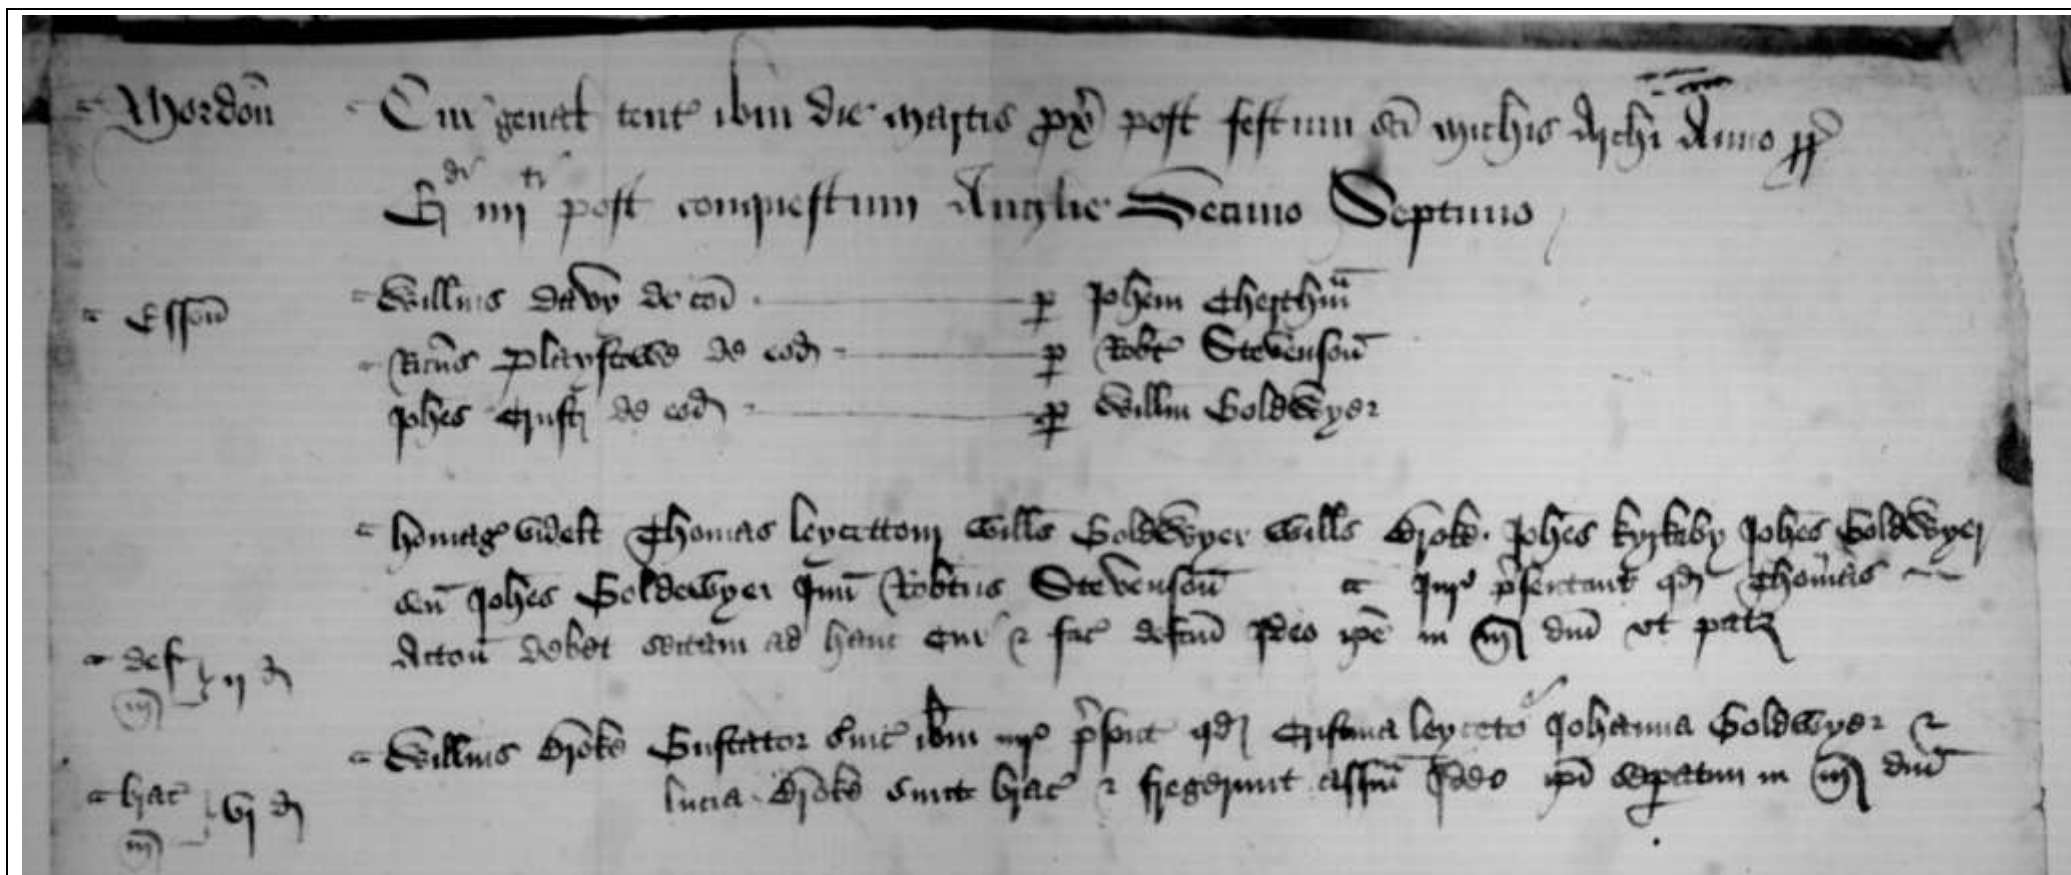 Mordoñ Cur̃ gen̄al tent̃ ibm̄ die martis px̄ post festum sc̄i Mich̄is Arch̄i Anno rr̃
E di iiij ti post conquestum Anglie Decimo Septimo
Essoñ Willm̄s Davy de cōi p Joh̄em
Ric̄us Playstowe de eod̄ p Rob̄t Stevensoñ
Joh̄es de eod̄ p Willm̄ Goldwyer
Homag̃ videlt Thomas leycetton Will̄s Goldwyer Will̄s Brok̄ Joh̄es kyrkeby Joh̄es Goldwyer
sen̄ Joh̄es Goldewyer Jun̄ Rob̄tus Stevensoñ Jur̃ p̄sentant qd̄ Thomas
def m̄ ij d̄ Actoñ debet sectam ad hanc Cur̃ & fac̃ defc̄m Ideo ip̄e in m̄ dn̄i ut patȝ
Willm̄s Brok̄e Gustator s̄vic̃ ib̄m Jur̃ p̄sent̃ qd̄ Cristina leyceto Johanna Goldwyer &
brac̃ m̄ vj d̄ lucia Brok̄e sunt brac̃ & fregerunt assim̄ Ideo ip̄i sepatim in m̄ dn̄i